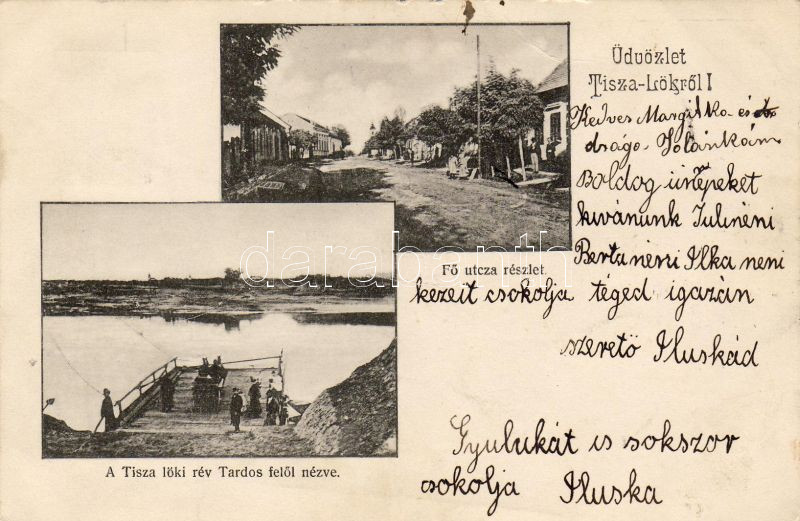 Üdvözlet
Tisza-Lökről!
Kedves Margitka és
drága Jolánkám
Boldog ünnepeket
kivánunk Julinéni
Bertanéni Ilka neni
kezeit csokolja téged igazán
szerető Iluskád
Gyulukát is sokszor
csokolja Iluska
Fő utcza részlet.
A Tisza löki rév Tardos felől nézve.
darabanth